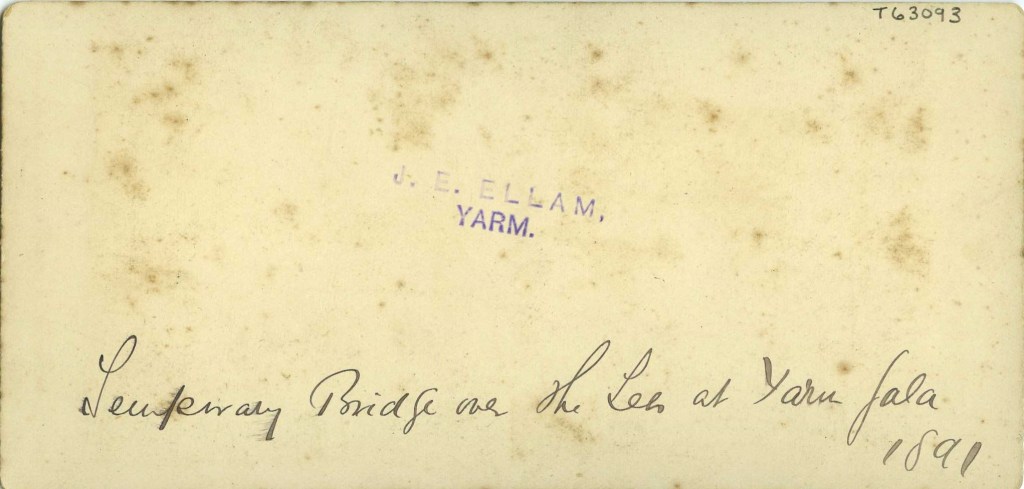 T63093
J. E. ELLAM,
YARM.
Temporary Bridge over the Tees at Yarm Gala
1891